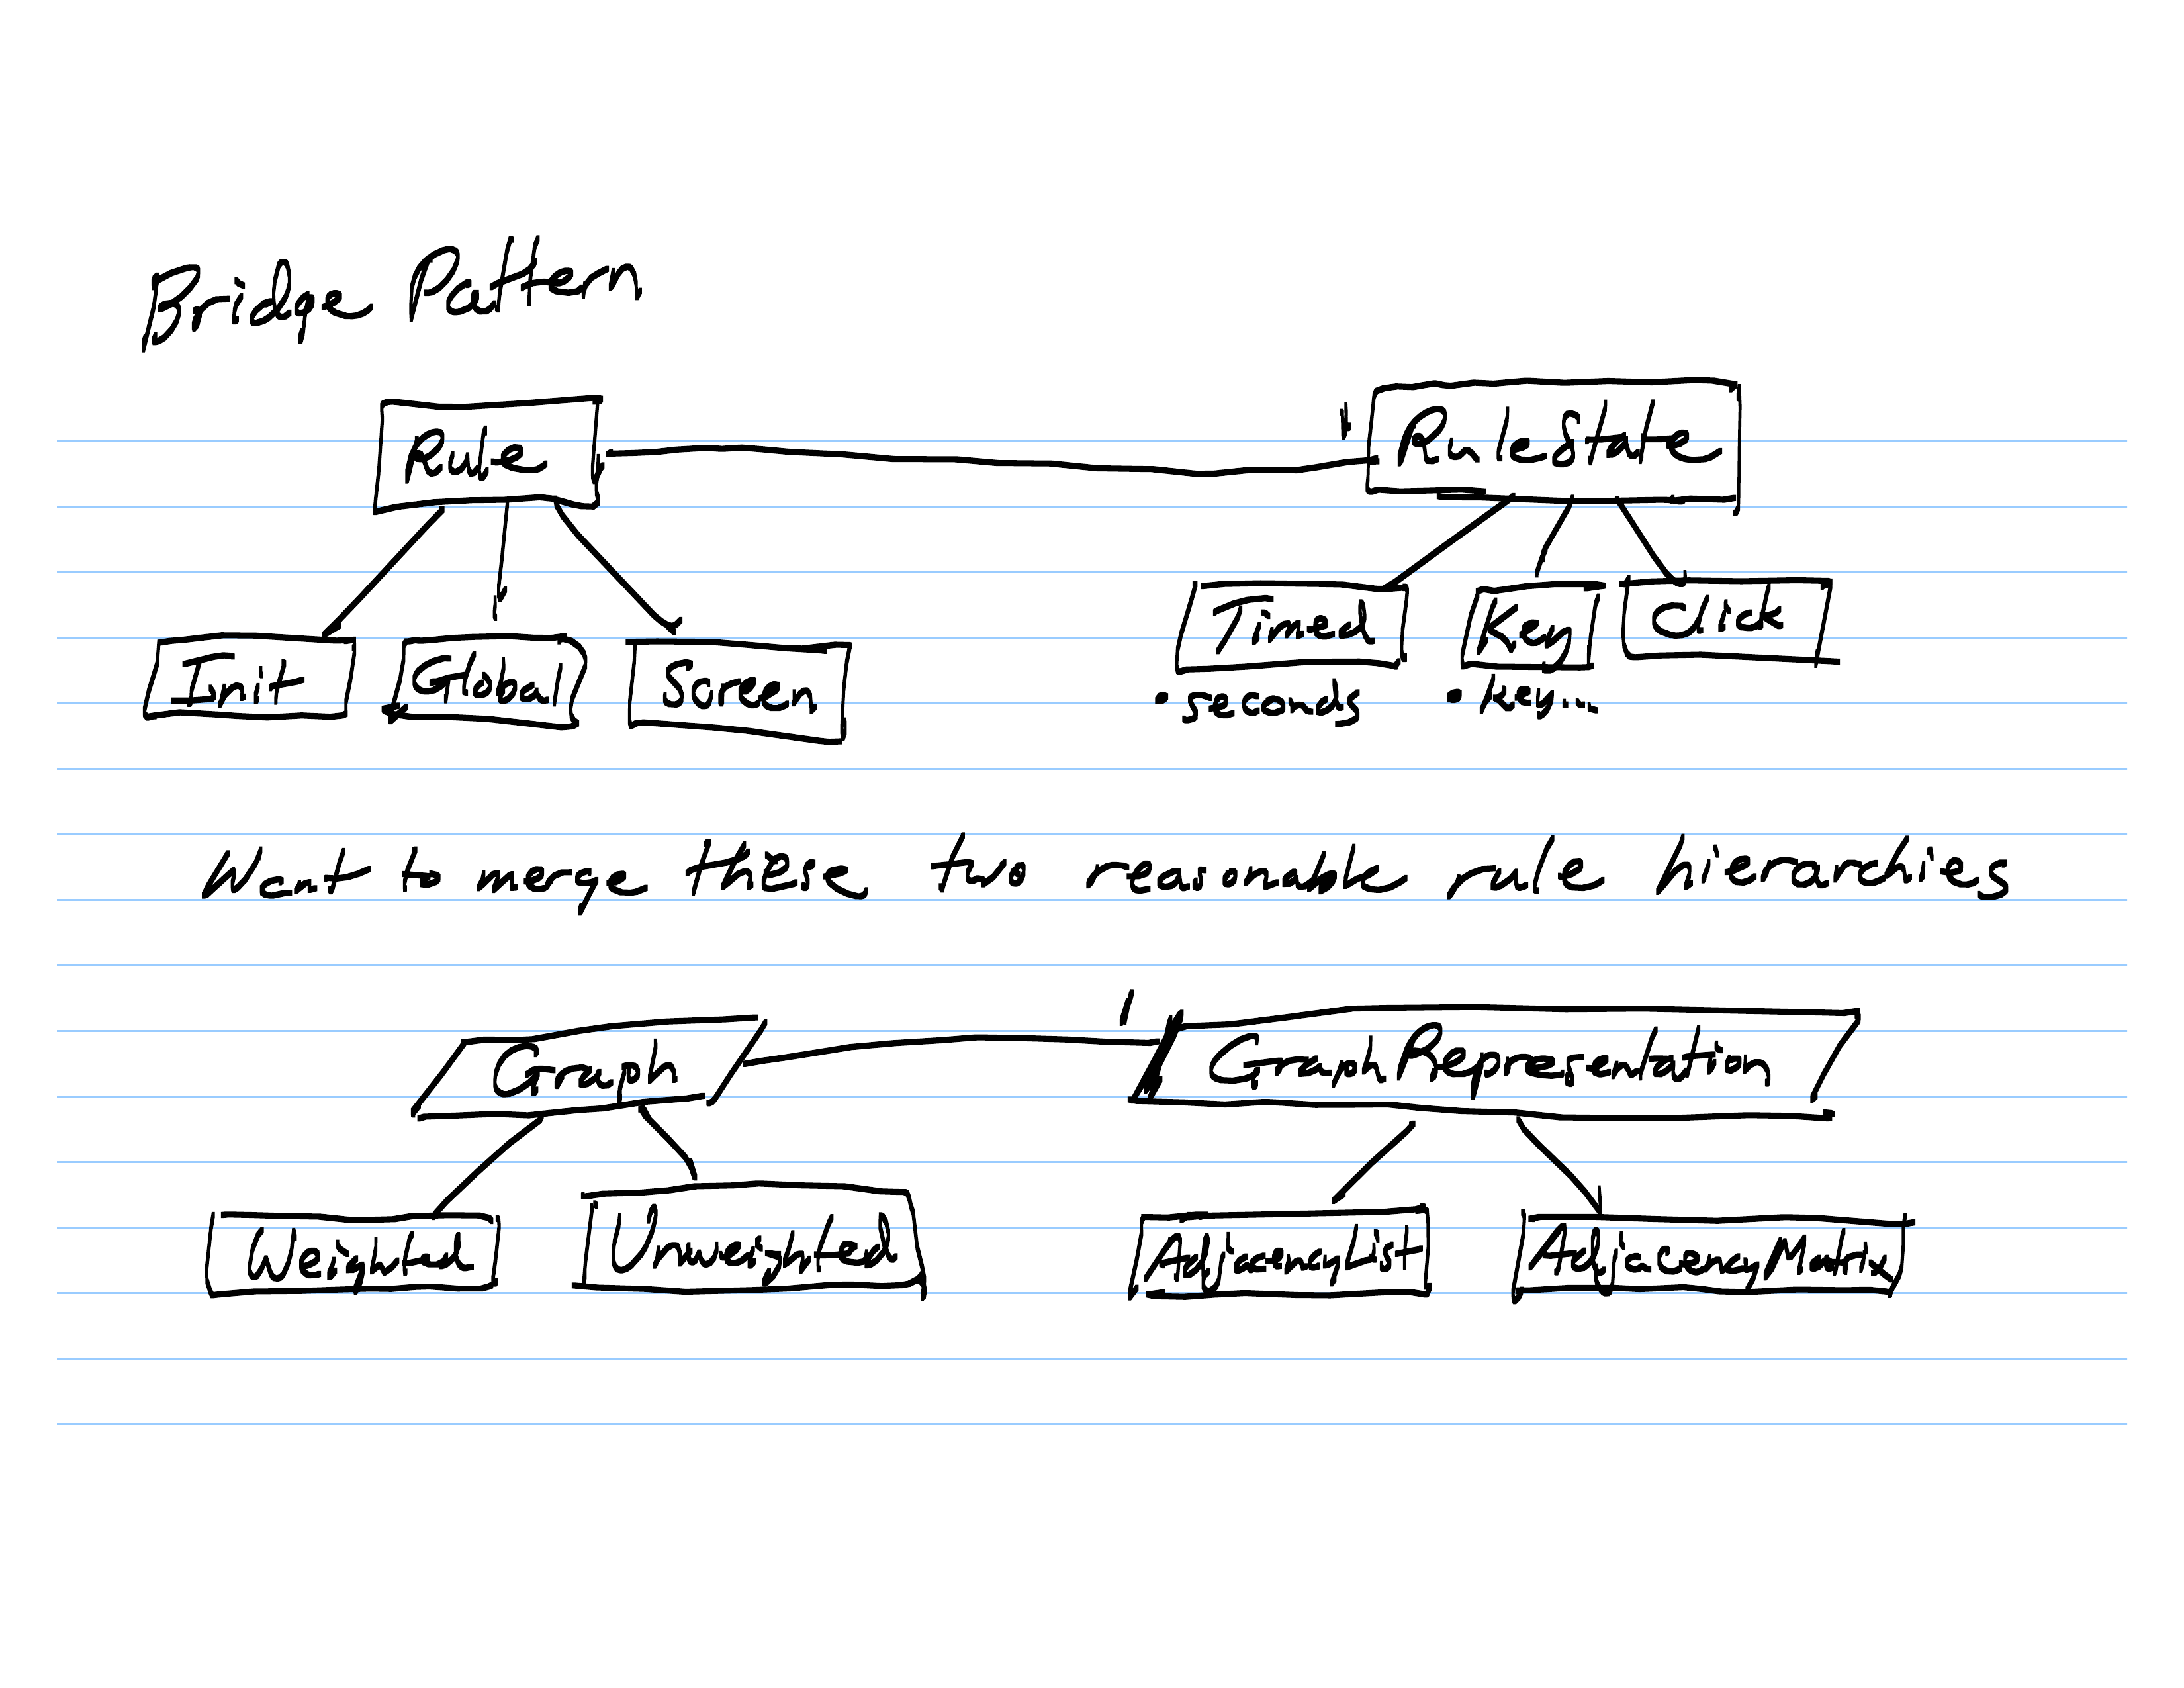 Bridge Pattern
Rule 1 RuleState
Init Global Screen Timed Key Click
• seconds • key...
Want to merge these two reasonable rule hierarchies
Graph 1 GraphRepresentation
Weighted Unweighted AdjacencyList AdjacencyMatrix